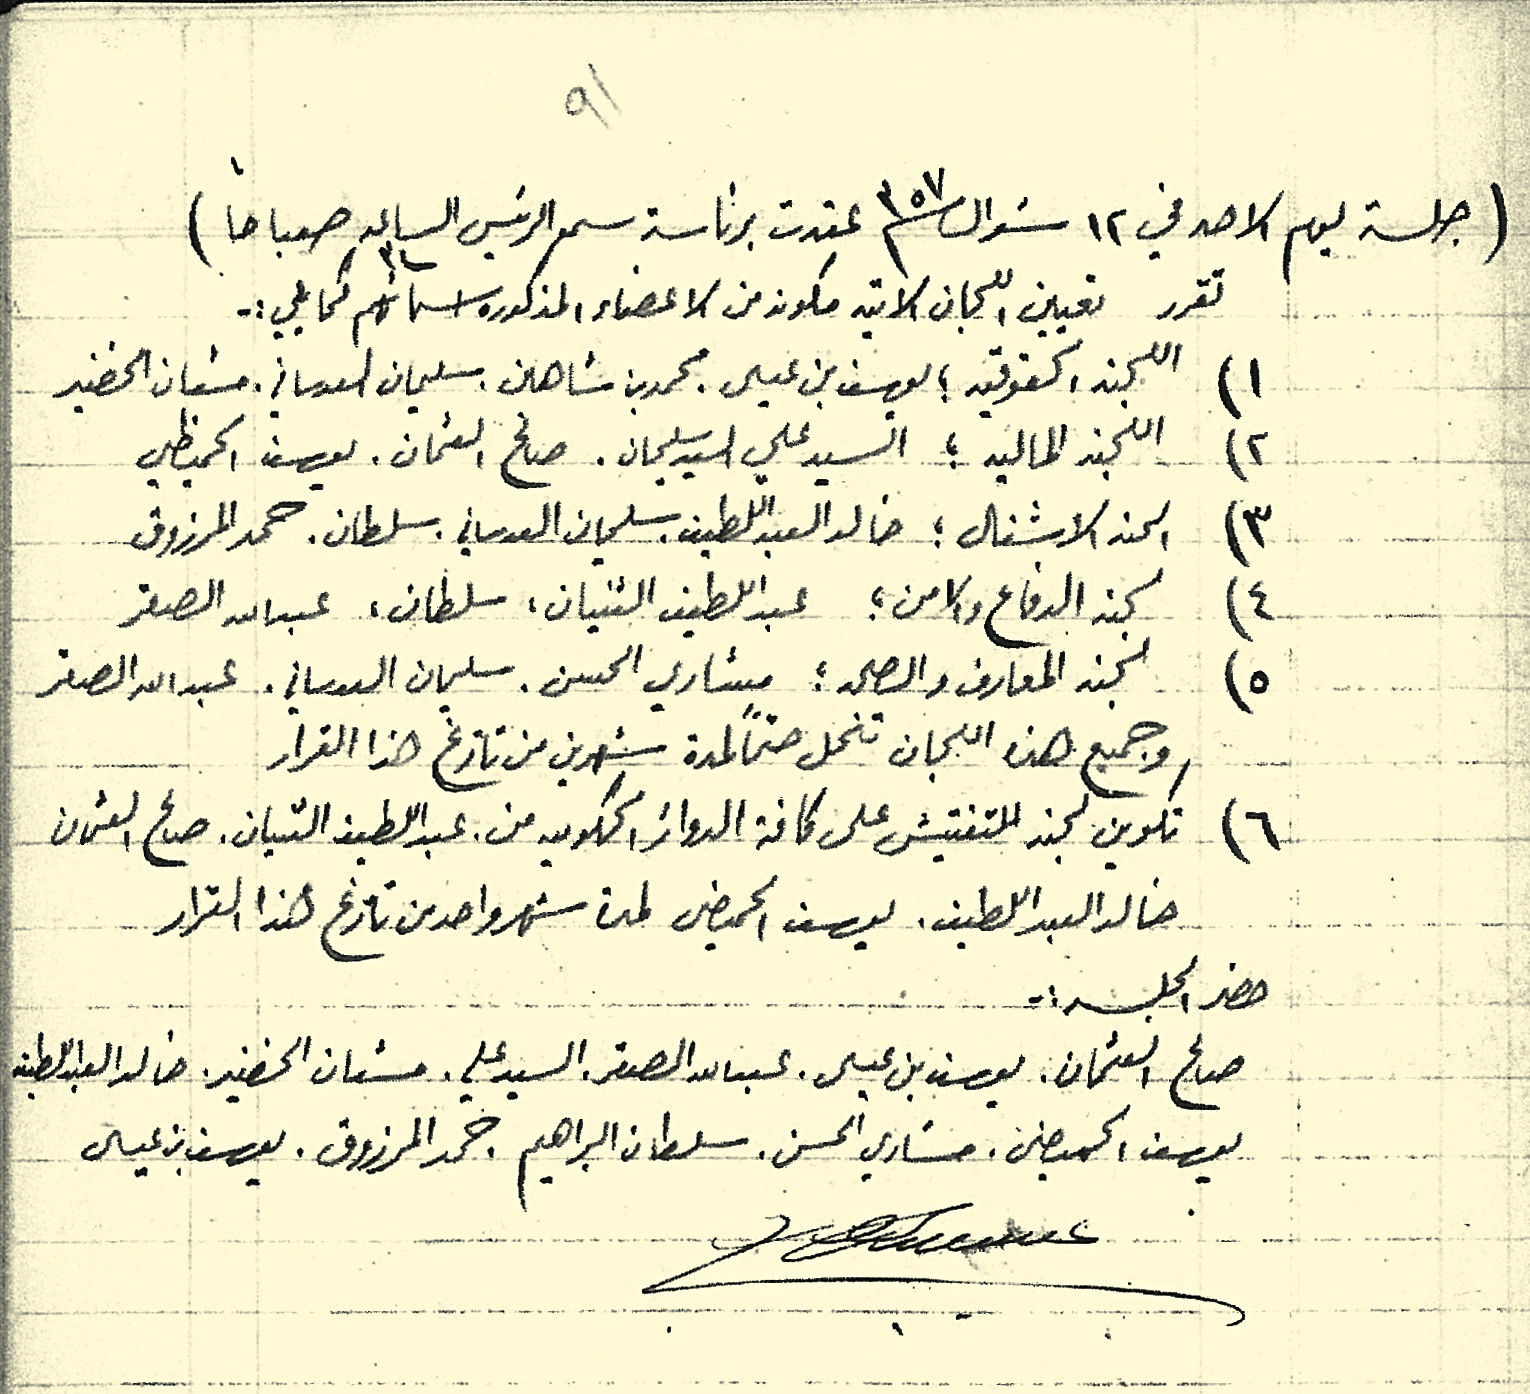 ٩١
(جلسة يوم الاحد في ١٢ شوال سنة ٣٥٧ عقدت برئاسة سمو الرئيس الساعه صباحاً)
تقرر تعيين اللجان الاتيه مكونه من الاعضاء المذكوره اسمائهم كما يلي :-
١) اللجنه الحقوقيه ؛ يوسف بن عيسى . محمد بن شاهين . سليمان العدساني . مشعان الخضير
٢) اللجنه الماليه ؛ السيد علي السيد سليمان . صالح العثمان . يوسف الحميظي
٣) لجنه الاشغال ؛ خالد العبد اللطيف . سليمان العدساني . سلطان . حمد المرزوق
٤) لجنه الدفاع والامن ؛ عبد اللطيف الثنيان ، سلطان ، عبدالله الصقر
٥) لجنه المعارف والصحه ؛ مشاري الحسن . سليمان العدساني . عبدالله الصقر
وجميع هذه اللجان تنحل حتماً لمدة شهرين من تاريخ هذا القرار
٦) تكوين لجنه للتفتيش على كافة الدوائر الحكوميه من . عبد اللطيف الثنيان . صالح العثمان
خالد العبد اللطيف . يوسف الحميضي لمدة شهر واحد من تاريخ هذا القرار
حضر الجلسه :-
صالح العثمان . يوسف بن عيسى . عبدالله الصقر . السيد علي . مشعان الخضير . خالد العبد اللطيف
يوسف الحميضي . مشاري الحسن . سلطان البراهيم . حمد المرزوق . يوسف بن عيسى